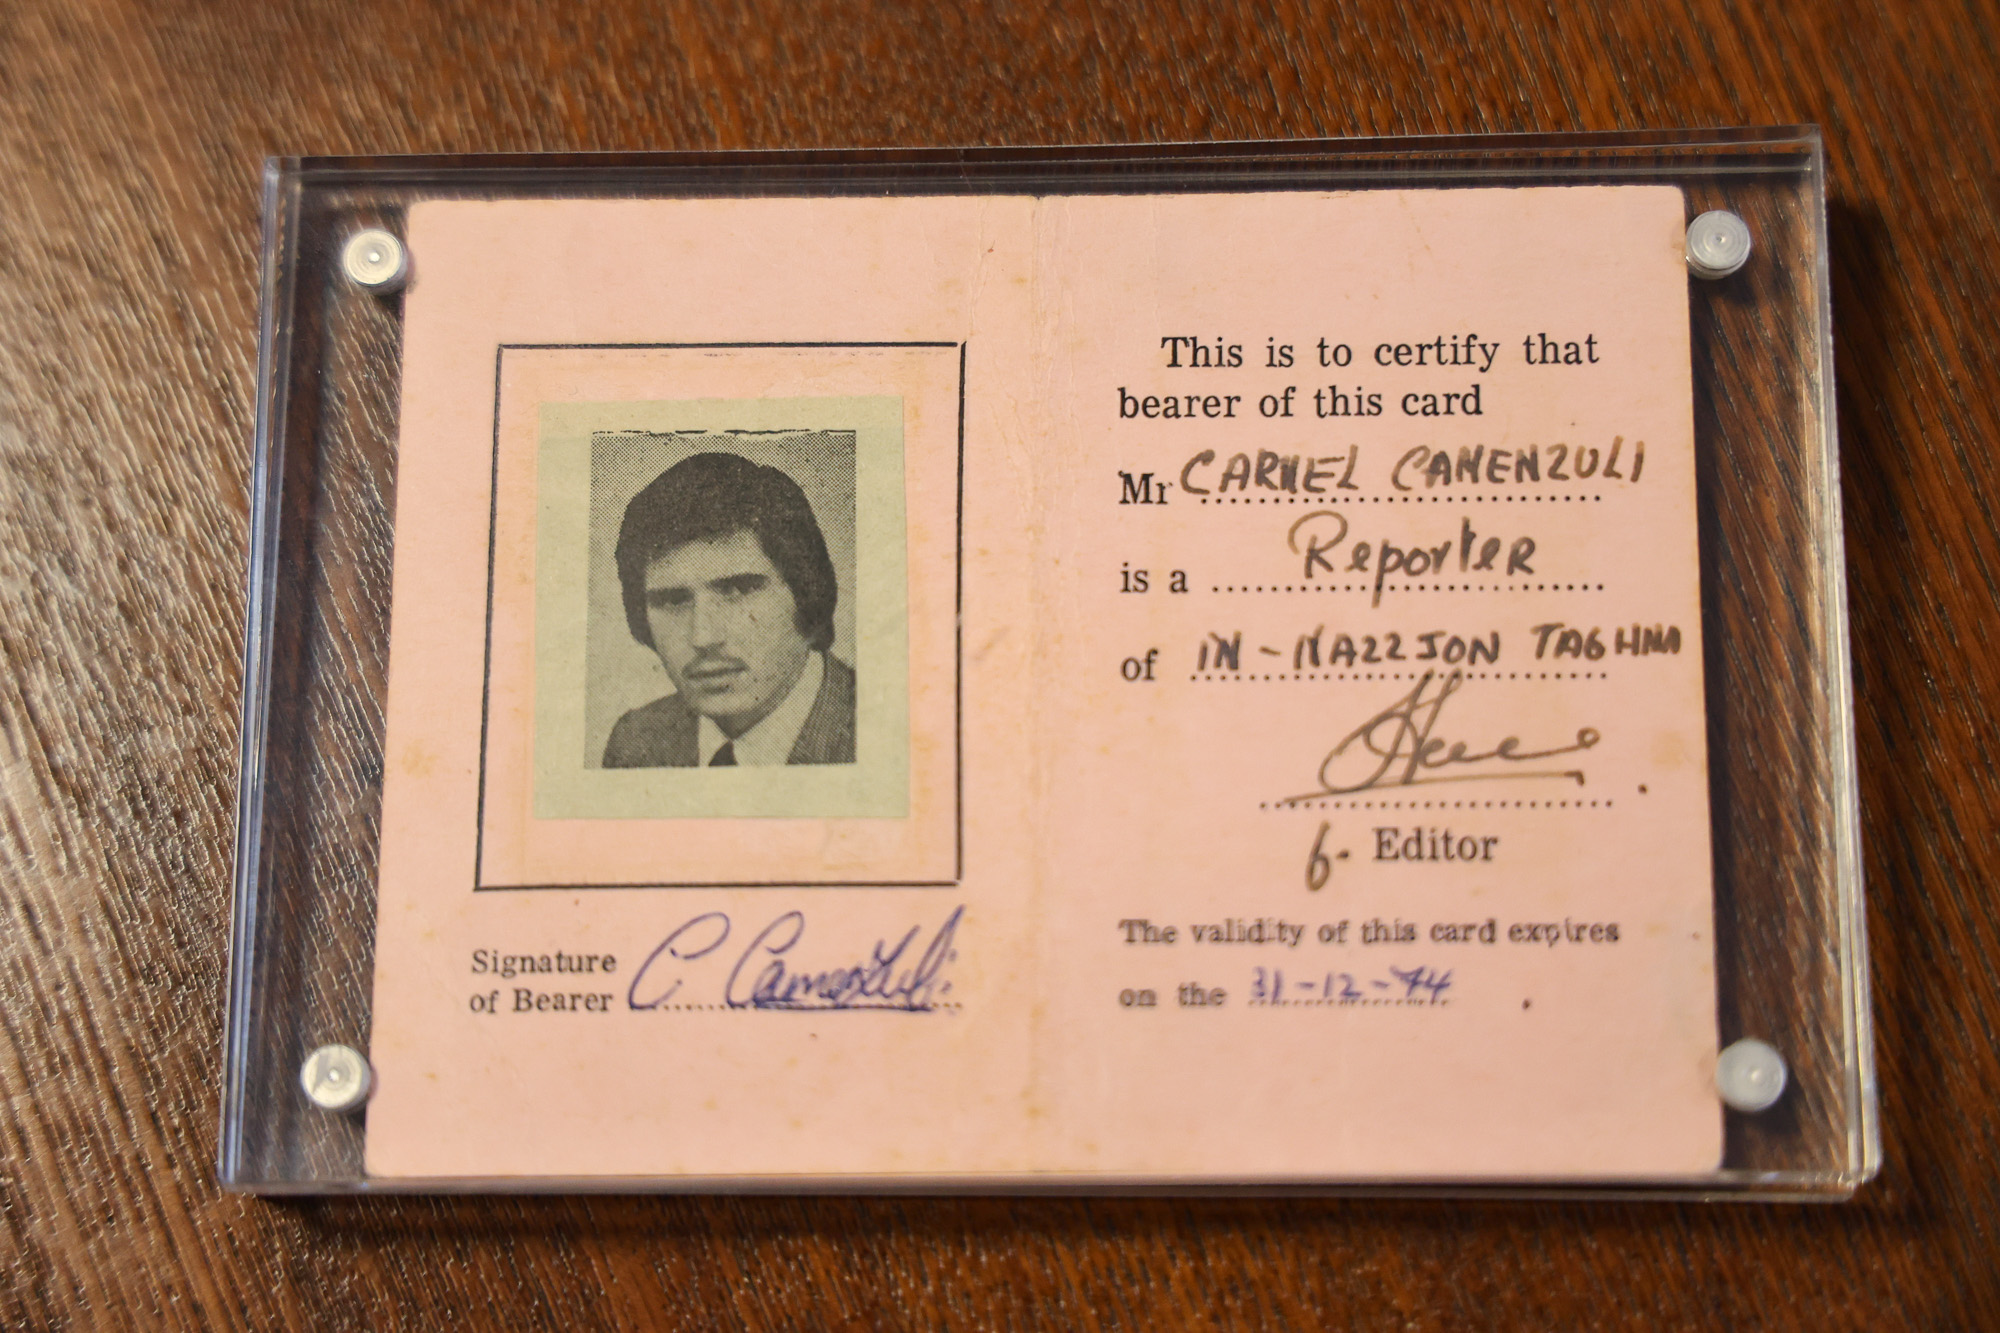 This is to certify that
bearer of this card
Mr CARMEL CAMENZULI
is a Reporter
of IN-NAZZJON TAGHNA
f. Editor
The validity of this card expires
on the 31-12-74
Signature
of Bearer C Camenzuli